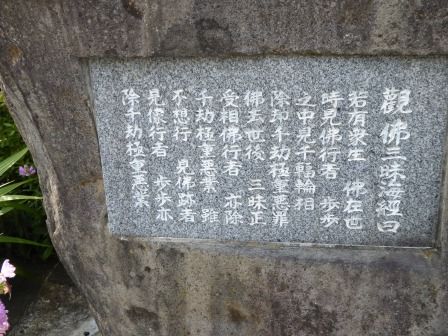 觀佛三昧海經曰
若有衆生　佛在世
時見佛行者　歩歩
之中見千輻輪相
除却千劫極重悪罪
佛去世後　三昧正
受想佛行者　亦除
千劫極重悪業　雖
不想行　見佛跡者
見像行者　歩歩亦
除千劫極重悪業